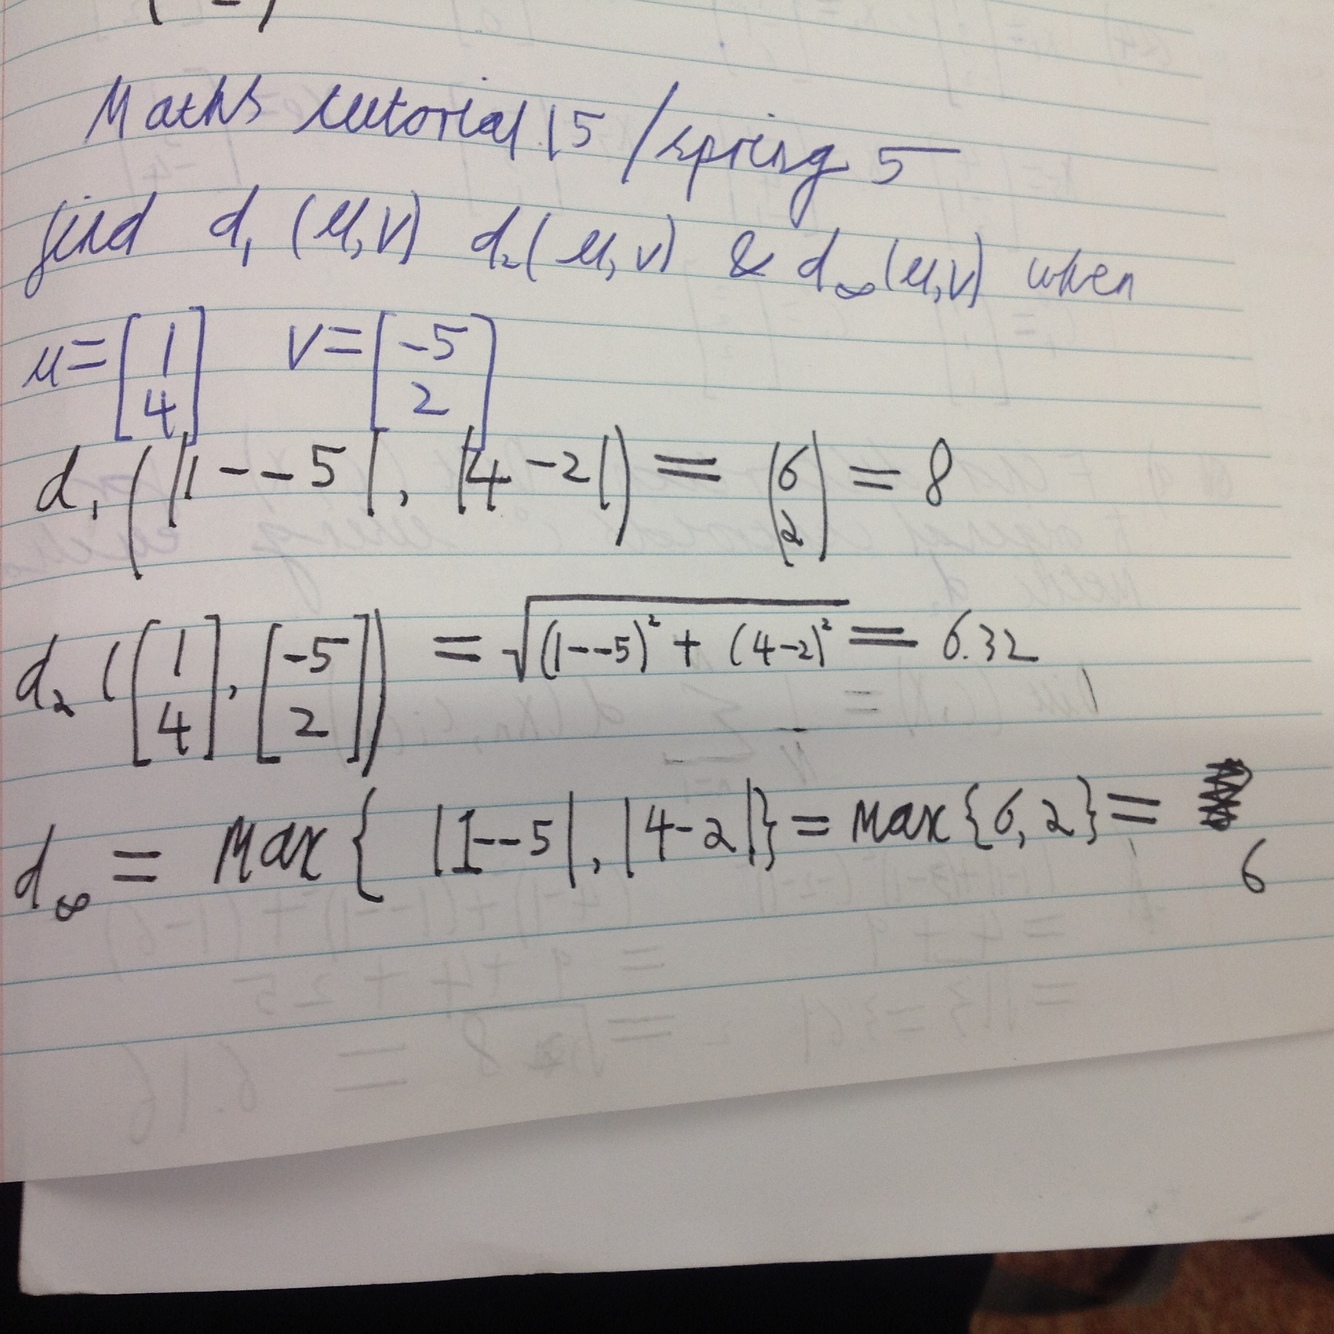 Maths tutorial 15 / spring 5
find d₁ (u,v) d₂(u,v) & d∞(u,v) when
u=[1 4] v=[-5 2]
d₁ (|1--5|, |4-2|) = (6 2) = 8
d₂ ([1 4], [-5 2]) = √((1--5)² + (4-2)²) = 6.32
d∞ = Max { |1--5|, |4-2|} = Max {6, 2} = 6